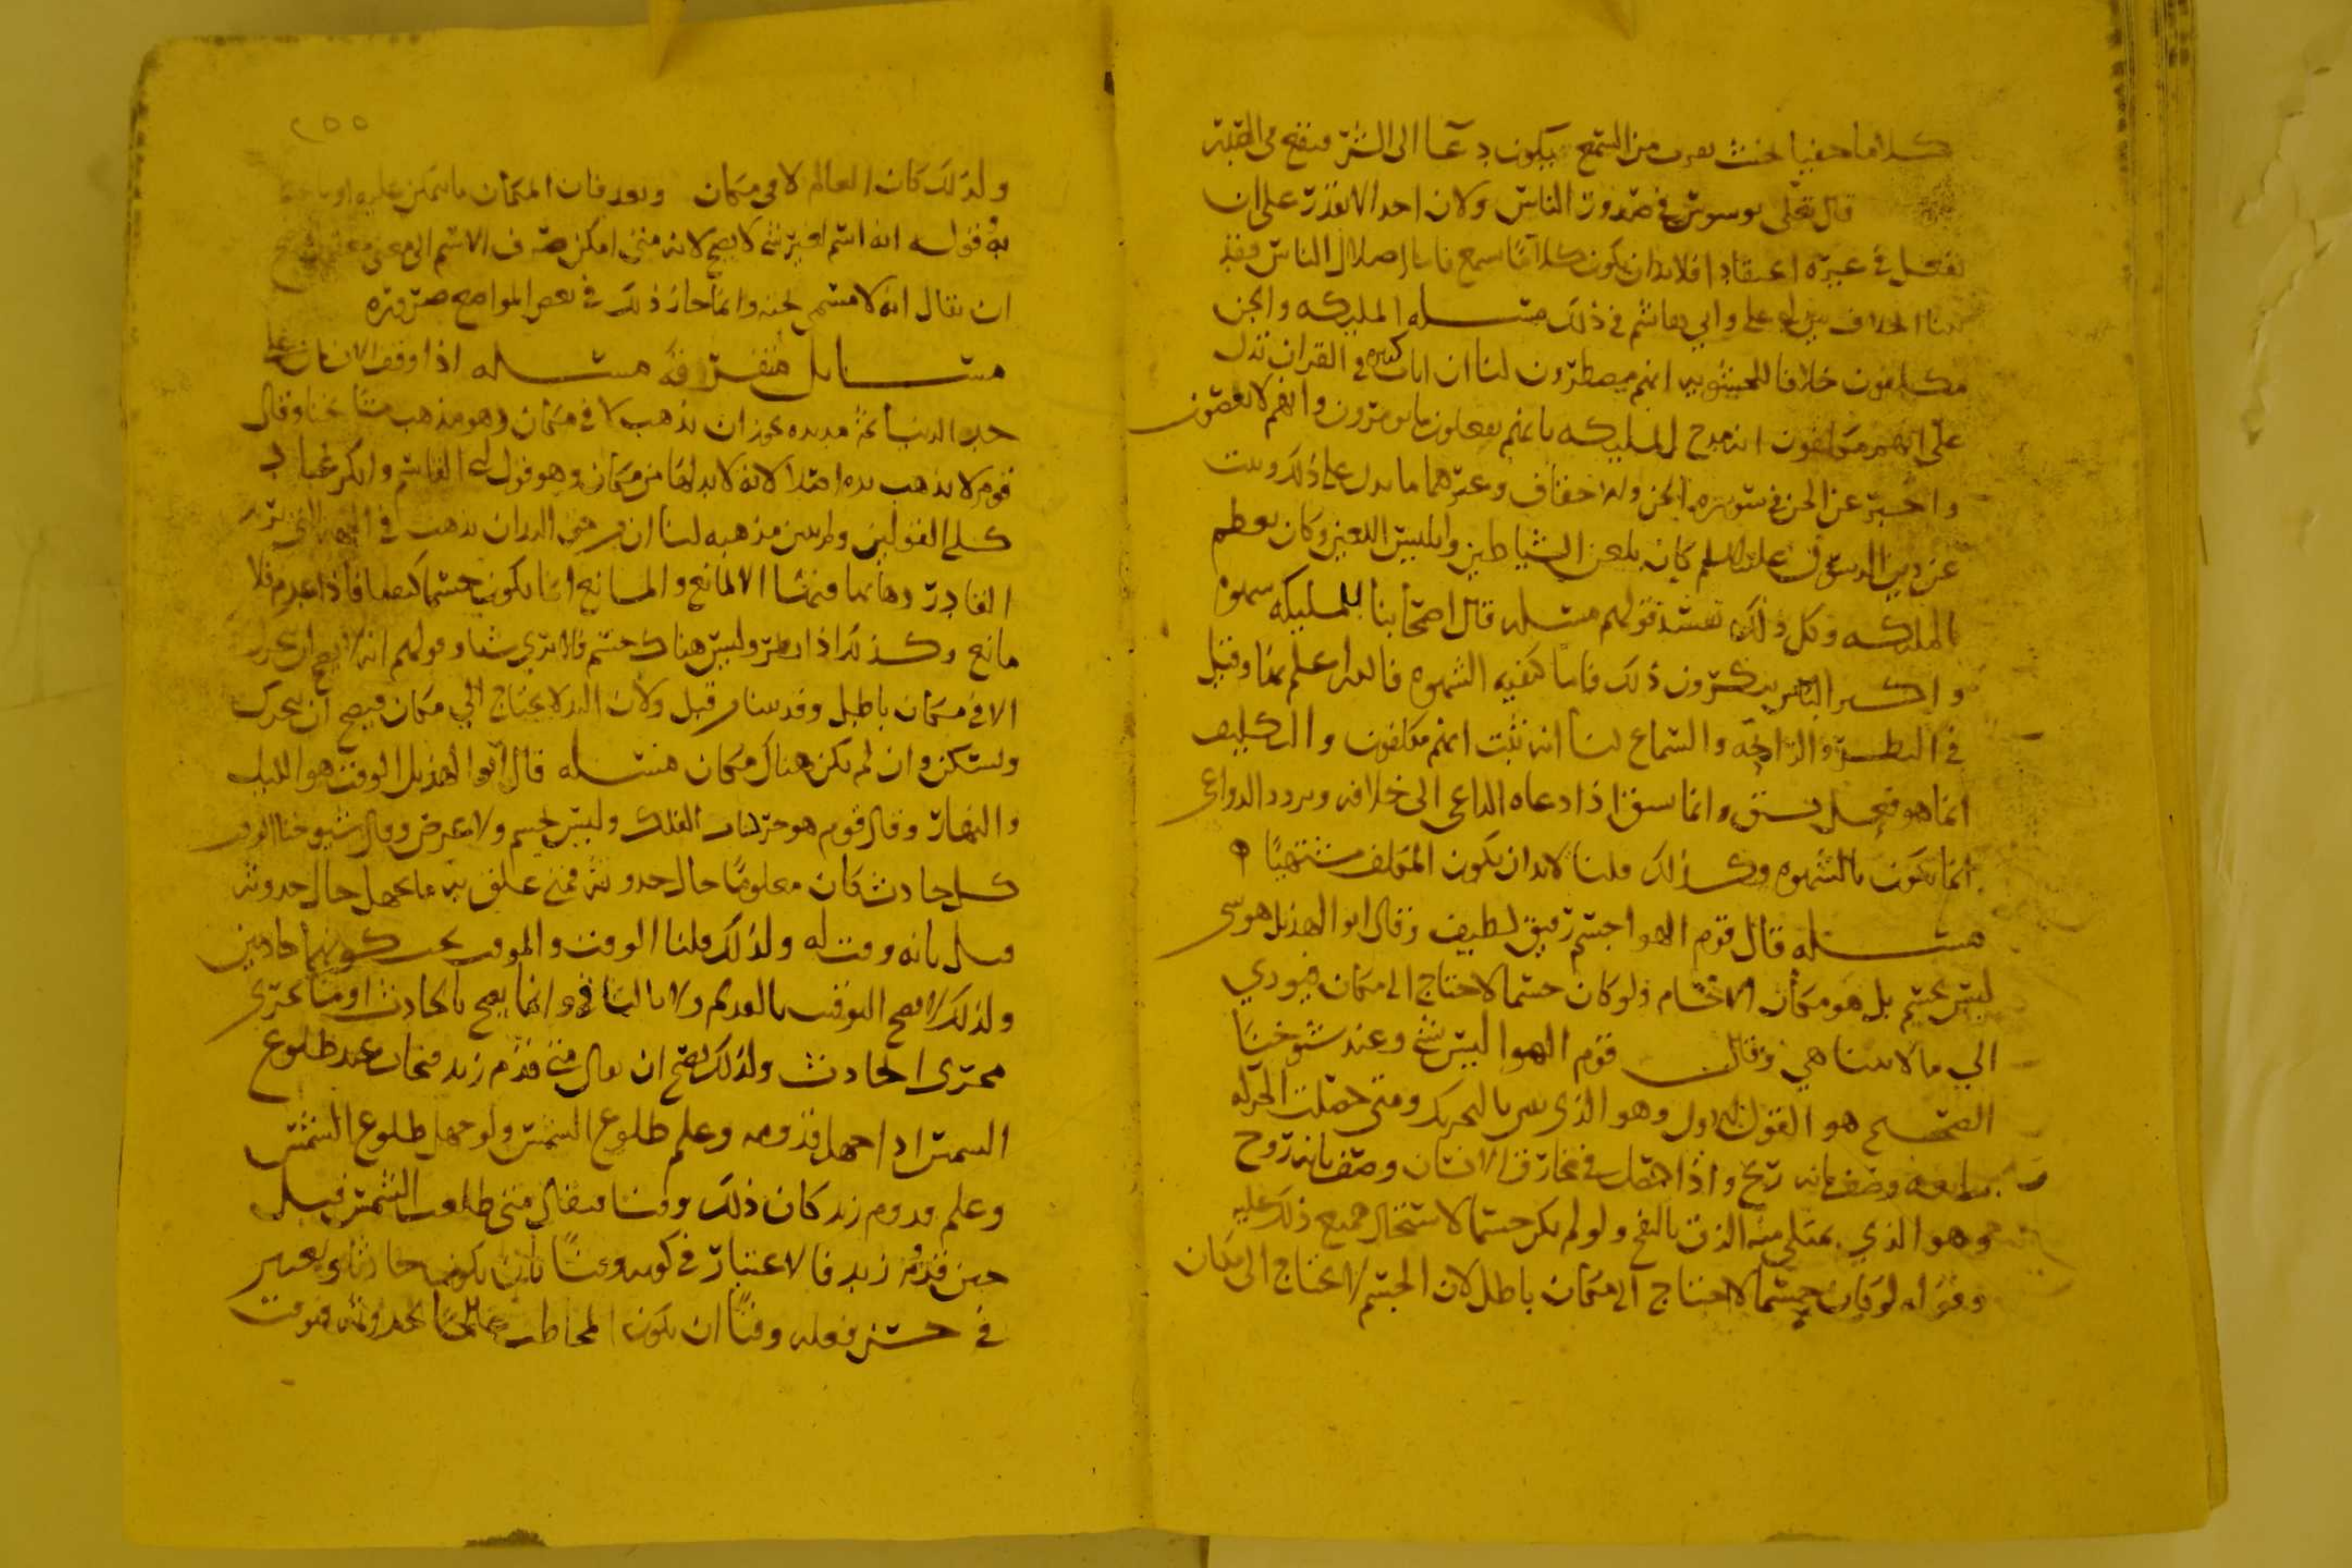 كلاما خفيا بحيث يقرب من السمع فيكون دعا الى الشر فيقبح في القبه
قال تعلى يوسوس في صدور الناس ولان احدا لا يقدر على ان
يفعل في غيره اعتقادا فلا بد ان يكون كلاما يسمع فاما اضلال الناس فقد
بينا الخلاف بين ابو علي وابي هاشم في ذلك مسله المليكه والجن
مكلفون خلافا للحشويه انهم مضطرون لنا ان ايات كثيره في القران تدل
على انهم مكلفون انه مدح المليكه بانهم يفعلون ما يومرون وانهم لا يعصون
واخبر عن الجن في سوره الجن والاحقاف وغيرهما ما يدل على ذلك وثبت
عن دين الرسول عليه السلم كان يلعن الشياطين وابليس اللعين وكان يعظم
المليكه وكل ذلك يفسد قولهم مسله قال اصحابنا للمليكه شهوه
واكثر الناس ينكرون ذلك فاما كيفيه الشهوه فالله اعلم بها وقيل
في النظر والرايحه والسماع لنا انه ثبت انهم مكلفون والتكليف
انما هو فعل يشق وانما يشق اذا دعاه الداعي الى خلافه وتردد الدواعي
انما يكون بالشهوه وكذلك قلنا لا بد ان يكون المكلف مشتهيا
مسله قال قوم الهوا جسم رقيق لطيف وقال ابو الهذيل هو شي
ليس بجسم بل هو مكان الاجسام ولو كان جسما لاحتاج الى مكان فيودي
الي ما لا يتناهي وقال قوم الهوا ليس بشي وعند شيوخنا
الصحيح هو القول الاول وهو الذي يبين بالتحريك ومتى حصلت الحركه
وصف بانه ريح واذا حصل في مخارق الانسان وصف بانه روح
وهو الذي يمتلي منه الزق بالنفخ ولو لم يكن جسما لاستحال جميع ذلك عليه
وقوله لو كان جسما لاحتاج الى مكان باطل لان الجسم لا يحتاج الى مكان
٢٥٥
ولذلك كان العالم لا في مكان وبعد فان المكان ما يتمكن عليه او
به فقوله انه اسم لغير شي لا يصح لانه متى امكن صرف الاسم الى معنى
ان يقال انه لا مسمى تحته وانما جاز ذلك في بعض المواضع ضروره
مسايل متفرقه مسله اذا وقف الانسان على
حد الدنيا ثم مد يده يجوز ان يذهب لا في مكان وهو مذهب مشايخنا وقال
قوم لا يذهب يده اصلا لانه لا بد لها من مكان وهو قول ابي القاسم وانكر عباد
كلي القولين لنا ان من حق اليد ان تذهب في الجهه التي يريد
القادر ذهابها فيها الا لمانع والمانع انما يكون جسما كثيفا فاذا عدم فلا
مانع وكذلك اذا نظر وليس هناك جسم فلا يرى شيا وقولهم انه لا يصح ان يتحرك
الا في مكان باطل وقد بينا من قبل ولان اليد لا تحتاج الي مكان فيصح ان يتحرك
ويسكن وان لم يكن هناك مكان مسله قال ابو الهذيل الوقت هو الليل
والنهار وقال قوم هو حركات الفلك وليس بجسم ولا عرض وقال شيوخنا الوقت
كل حادث كان معلوما حال حدوثه فمتى علق به ما يجهل حال حدوثه
قيل بانه وقت له ولذلك قلنا الوقت والموقت يجب كونهما حادثين
ولذلك لا يصح التوقيت بالقديم ولا بالباقي وانما يصح بالحادث او ما يجرى
مجرى الحادث ولذلك يصح ان يقال متى قدم زيد فيجاب عند طلوع
الشمس اذا جهل قدومه وعلم طلوع الشمس ولو جهل طلوع الشمس
وعلم قدوم زيد كان ذلك وقتا فيقال متى طلعت الشمس فيقال
حين قدم زيد فالاعتبار في كونه وقتا بان يكون حادثا ويعتبر
في حسن فعله وقتا ان يكون المخاطب عالما بحدوثه فوقت